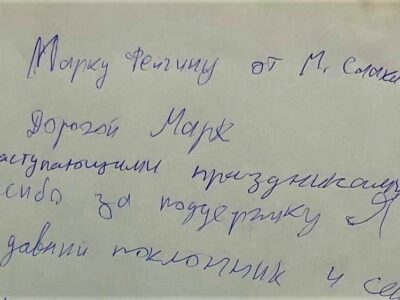 Марку Фейгину от М.
Дорогой Марк
аступающими праздниками
сибо за поддержку Я
давний поклонник и се